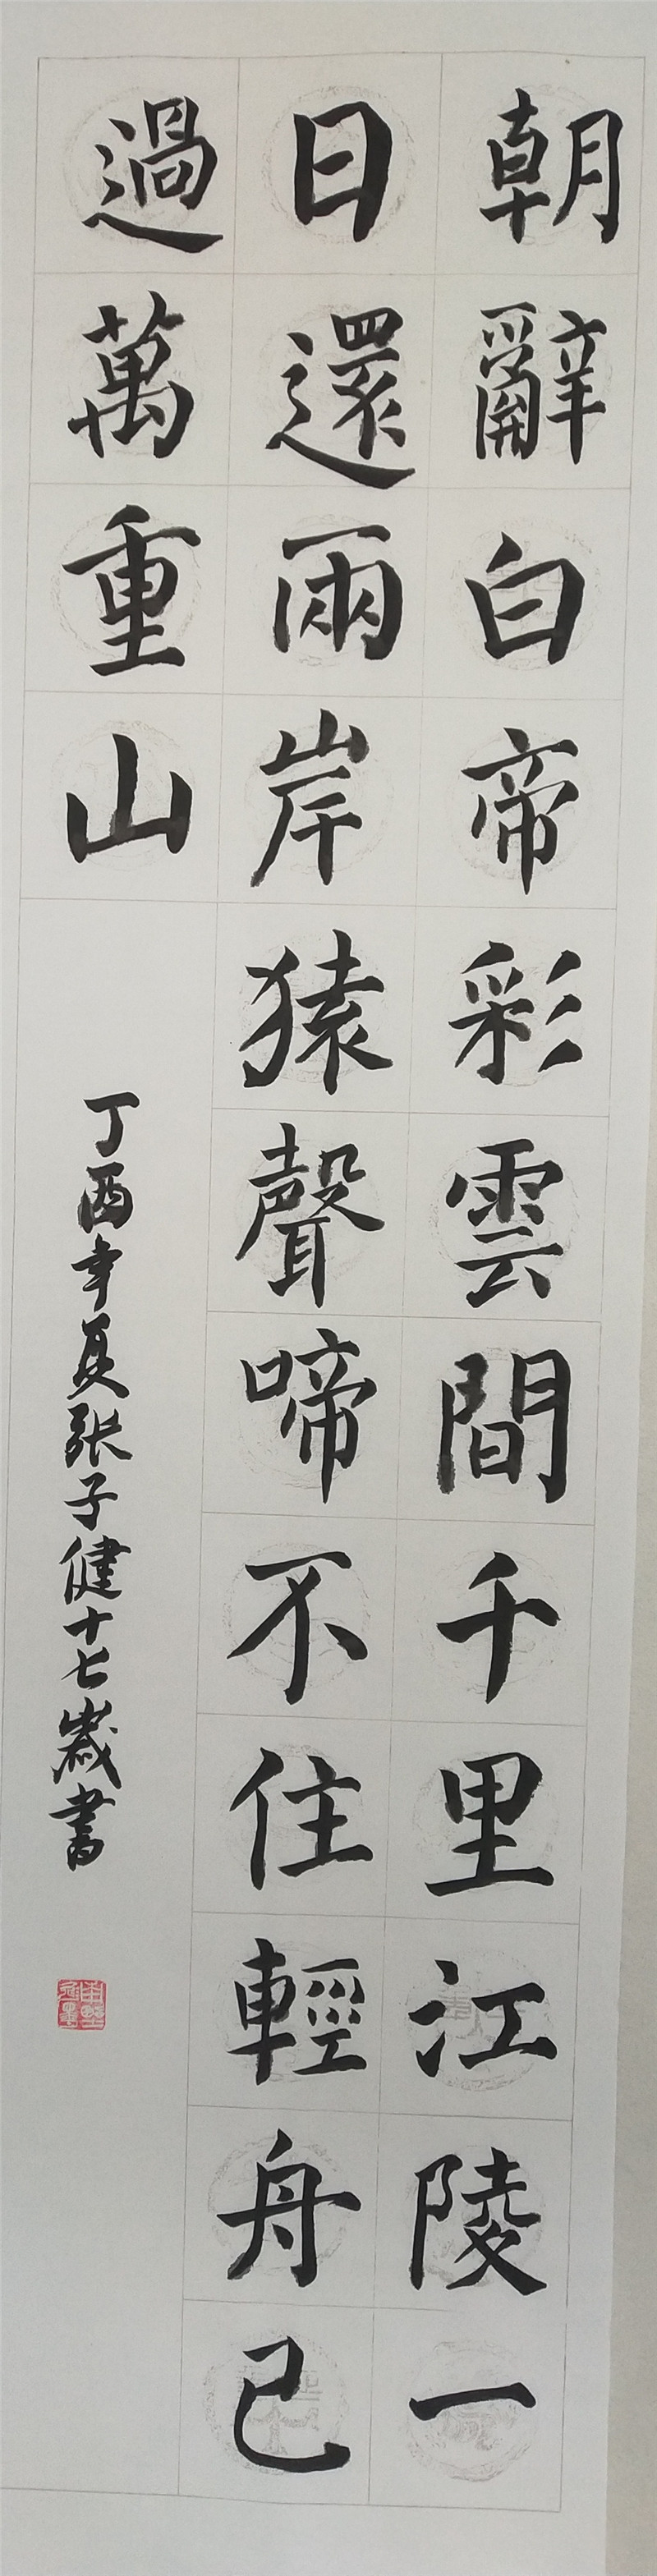 朝辭白帝彩雲間千里江陵一
日還兩岸猿聲啼不住輕舟已
過萬重山
丁酉年夏张子健十七歲書